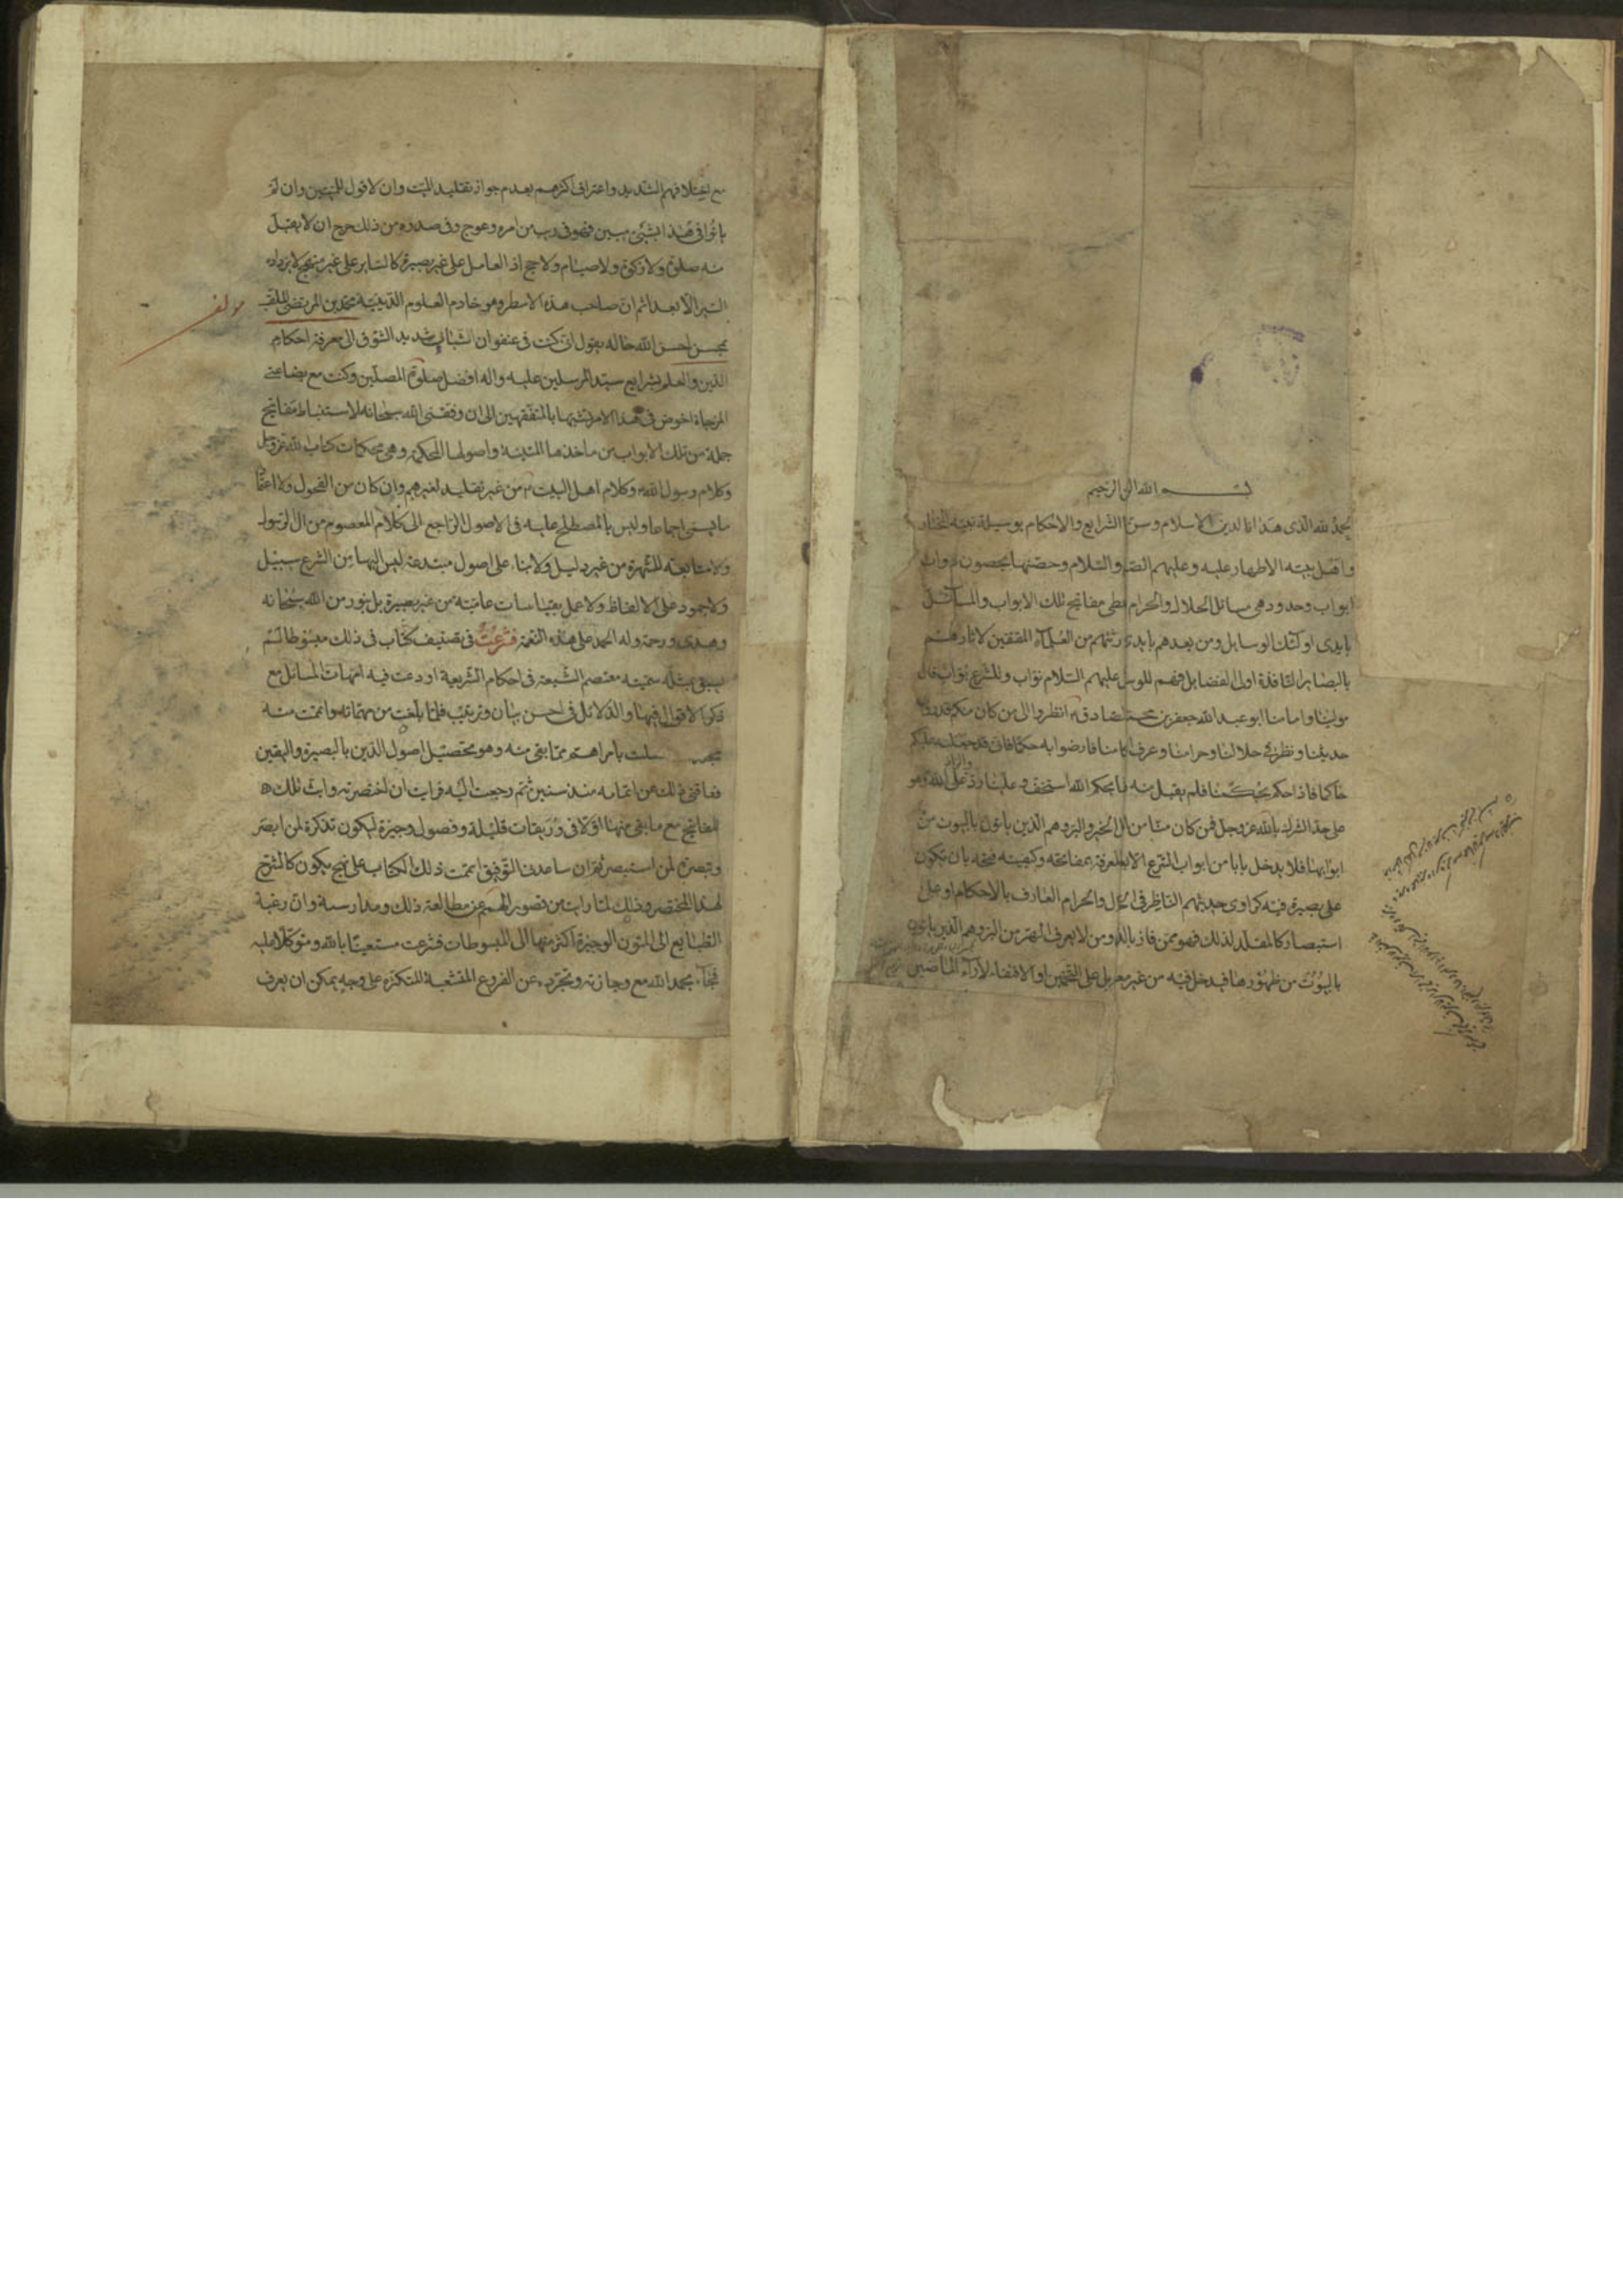 بسم الله الرحمن الرحيم
الحمد لله الذى هدانا لدين الاسلام وسن لنا الشرايع والاحكام بوسيلة نبيه المختار
واهل بيته الاطهار عليه وعليهم الصلوة والسلام وحصنها بحصون ذوات
ابواب وحدود هى مسائل الحلال والحرام مفاتيح تلك الابواب والمسائل
بايدى اولئك الوسايل ومن بعدهم بايدى من العلماء المقتفين لاثارهم
بالبصاير النافذة اولى الفضايل فهم عليهم السلام نواب وللشرع بواب قال
مولينا وامامنا ابو عبد الله جعفر بن محمد الصادق انظروا الى من كان منكم قد روى
حديثنا ونظر فى حلالنا وحرامنا وعرف احكامنا فارضوا به حكما فانى قد جعلته عليكم
حاكما فاذا حكم بحكمنا فلم يقبل منه فانما بحكم الله استخف وعلينا رد على الله وهو
والراد
على حد الشرك بالله عز وجل فمن كان منا من اهل الخير والبر وهم الذين ياتون البيوت من
ابوابها فلا يدخل بابا من ابواب الشرع الا بعد معرفة بمفاتحه وكيفية فتحه بان يكون
على بصيرة فيه كراوى حديثهم الناظر فى الحلال والحرام العارف بالاحكام او على
استبصار كالمقلد لذلك فهو ممن فاز بالله ومن لا يعرف الهر من البر وهم الذين ياتون
البيوت من ظهورها فيدخل فيه من غير معرفة بل على التخمين او الاقتفاء لاراء الماضين
مع اختلافهم الشديد واعتراف اكثرهم بعدم جواز تقليد الميت وان لا قول للميتين وان لم
ياتوا فى هذا بشىء مبين فهو فى ريب من امره وعوج وفى صدوره من ذلك حرج ان لا يقبل
منه صلوة ولا زكوة ولا صيام ولا حج اذ العامل على غير بصيرة كالساير على غير منهج لا يزداده
السير الا بعدا ثم ان صاحب هذه الاسطر وهو خادم العلوم الدينية محمد بن المرتضى الملقب
مولف
بمحسن احسن الله حاله يقول انى كنت فى عنفوان الشباب شديد الشوق الى معرفة احكام
الدين والعلم بشرايع سيد المرسلين عليه واله افضل صلوة المصلين وكنت مع بضاعتى
المزجاة اخوض فى هذا الامر تشبها بالمتفقهين الى ان وفقنى الله سبحانه لاستنباط مفاتيح
جملة من تلك الابواب من ماخذها المتينة واصولها المحكمة وهى محكمات كتاب الله عز وجل
وكلام رسول الله وكلام اهل البيت من غير تقليد لغيرهم وان كان من الفحول ولا اعتماد
ما يسمى اجماعا وليس بالمصطلح عليه فى الاصول الراجع الى كلام المعصوم من ال الرسول
ولا متابعة للشهرة من غير دليل ولا بناء على اصول مبتدعة ليس اليها من الشرع سبيل
ولا جمود على الالفاظ ولا عمل بقياسات عامية من غير بصيرة بل بنور من الله سبحانه
وهدى ورحمة وله الحمد على هذه النعمة فشرعت فى تصنيف كتاب فى ذلك مبسوط لم
يسبق بمثله سميته معتصم الشيعة فى احكام الشريعة اودعت فيه امهات المسائل مع
ذكر الاقوال فيها والدلائل فى احسن بيان وترتيب فلما بلغت من مهماته واتممت منه
بامر اهم مما بقى منه وهو تحصيل اصول الدين بالبصيرة واليقين
فعاقنى ذلك عن اتمامه منذ سنين ثم رجعت اليه فرايت ان اختصرته واثبت تلك
المفاتيح مع ما بقى منها اولا فى وريقات قليلة وفصول وجيزة ليكون تذكرة لمن ابصر
وتبصرة لمن استبصر ثم ان ساعدنى التوفيق اتممت ذلك الكتاب على نهج يكون كالشرح
لهذا المختصر وذلك لما رايت من قصور الهمم عن مطالعة ذلك ومدارسته وان رغبة
الطبايع الى المتون الوجيزة اكثر منها الى المبسوطات فشرعت مستعينا بالله ومتوكلا عليه
فجاء بحمد الله مع وجازته وتجرده عن الفروع المتشعبة المتكثره على وجه يمكن ان يعرف